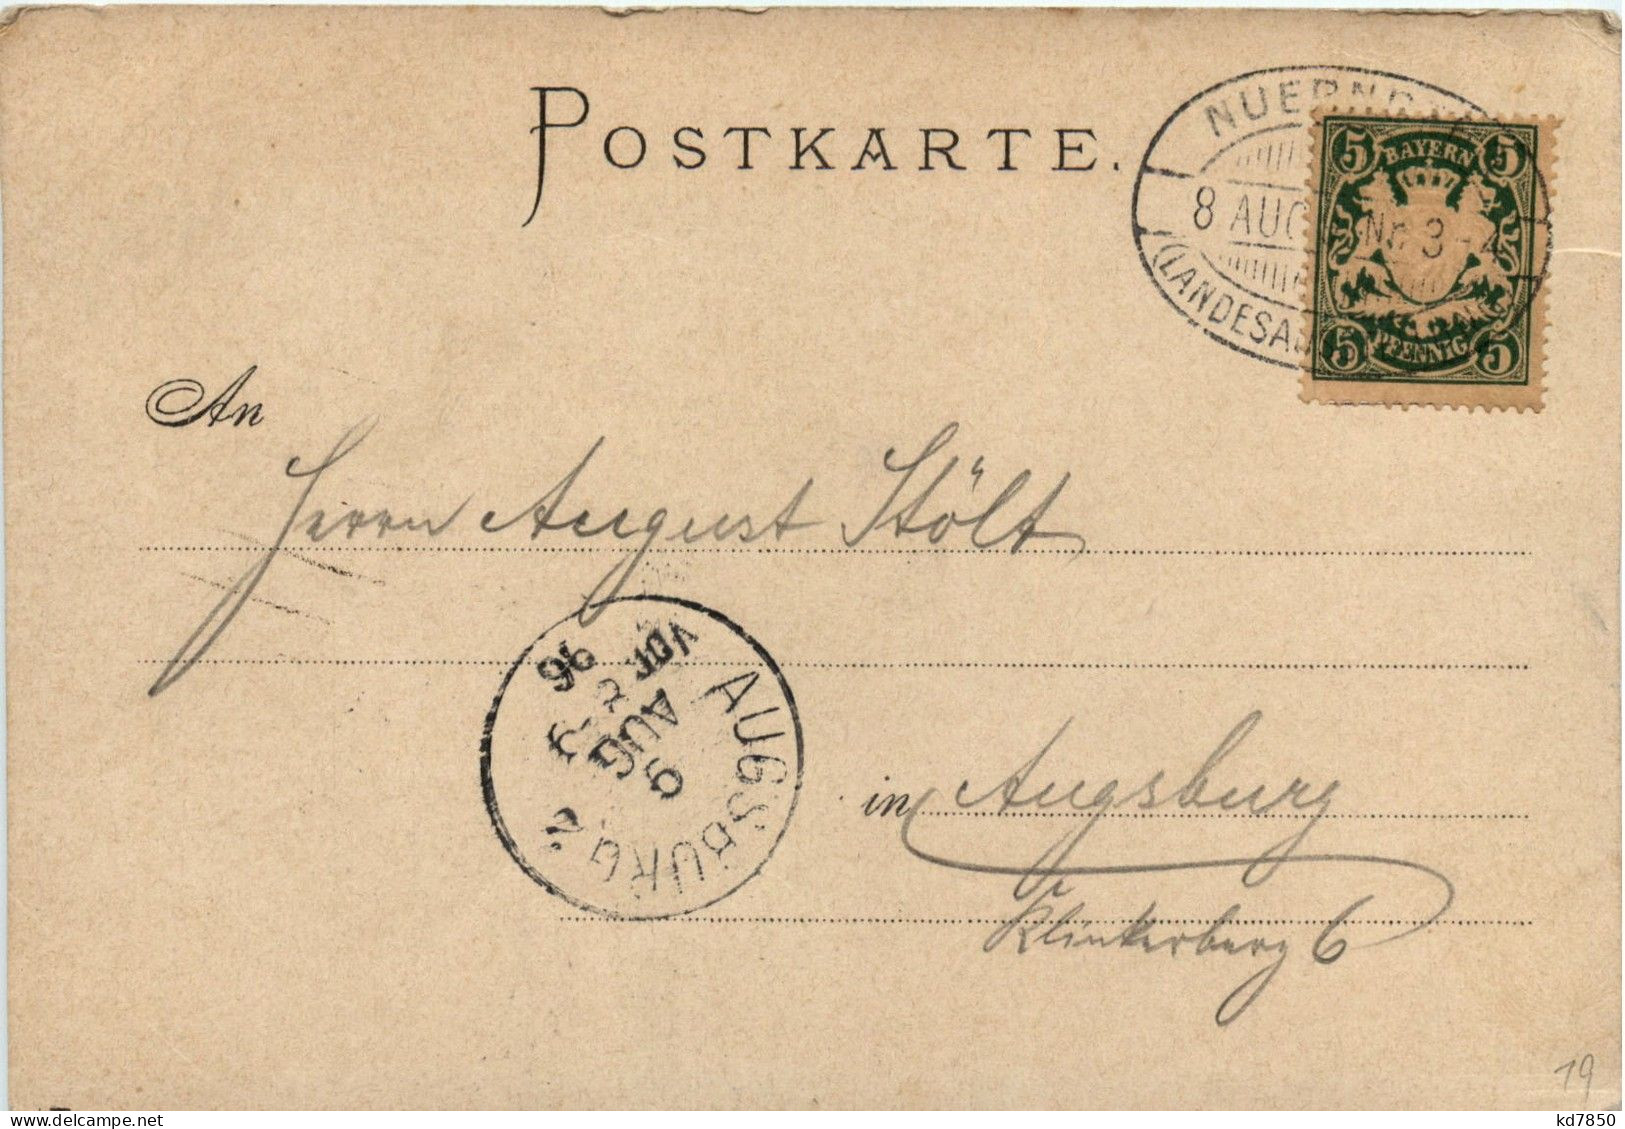 POSTKARTE.
NUERNB
8 AUG Nr. 3-4
(LANDESA
5 BAYERN 5
5 PFENNIG 5
An
Herrn August Stölt
AUGSBURG 2
9 AUG
VOR
96
in Augsburg
Klinkerberg 6
19
www.delcampe.net
kd7850